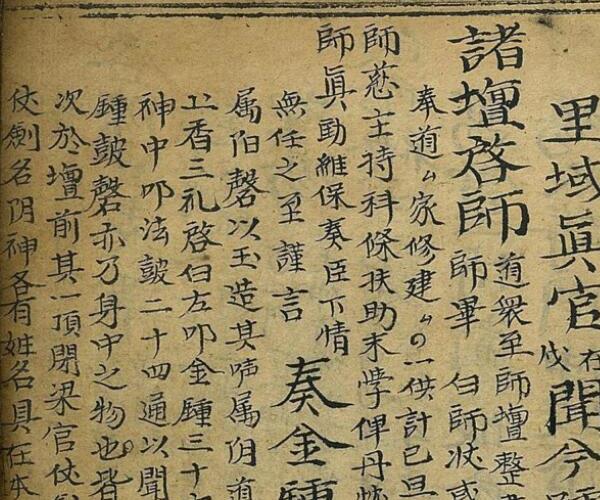 里域眞官在伐聞今
諸壇啓師道衆至師壇整師畢白師狀或
奉道〻家修建〻〇一供計已旦
師慈主持科條扶助末學俾丹
師眞勛維保奏臣下情
無任之至謹言奏金鍾
属阳磬以玉造其声属阴道
上香三礼啓白左叩金鍾三十
神中叩法皷二十四通以聞
鍾皷磬亦乃身中之物也皆
次於壇前其一頂閉梁官仗
仗劍名阴神各有姓名具在本